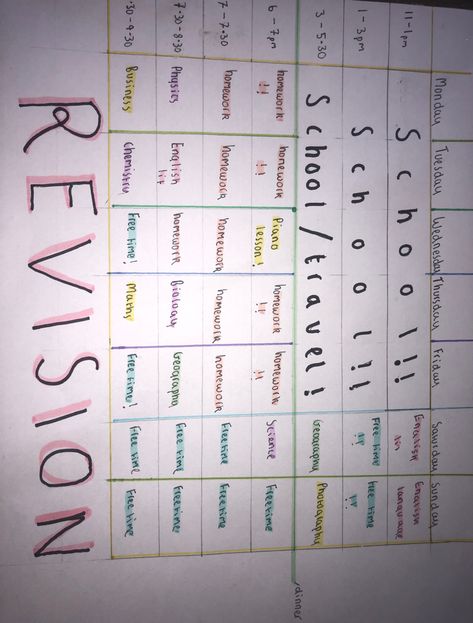 Monday Tuesday Wednesday Thursday Friday Saturday Sunday
11 - 1pm School!! English English language
1 - 3pm School!! Free time !! Free time !!
3 - 5.30 School/travel! Geography Photography
dinner
6 - 7pm homework !! homework !! Piano lesson! homework !! homework !! Science Free time
7 - 7.30 homework homework homework homework homework Free time Free time
7.30 - 8.30 Physics English lit homework Biology Geography Free time Free time
.30 - 9.30 Business Chemistry Free time! Maths Free time! Free time Free time
REVISION